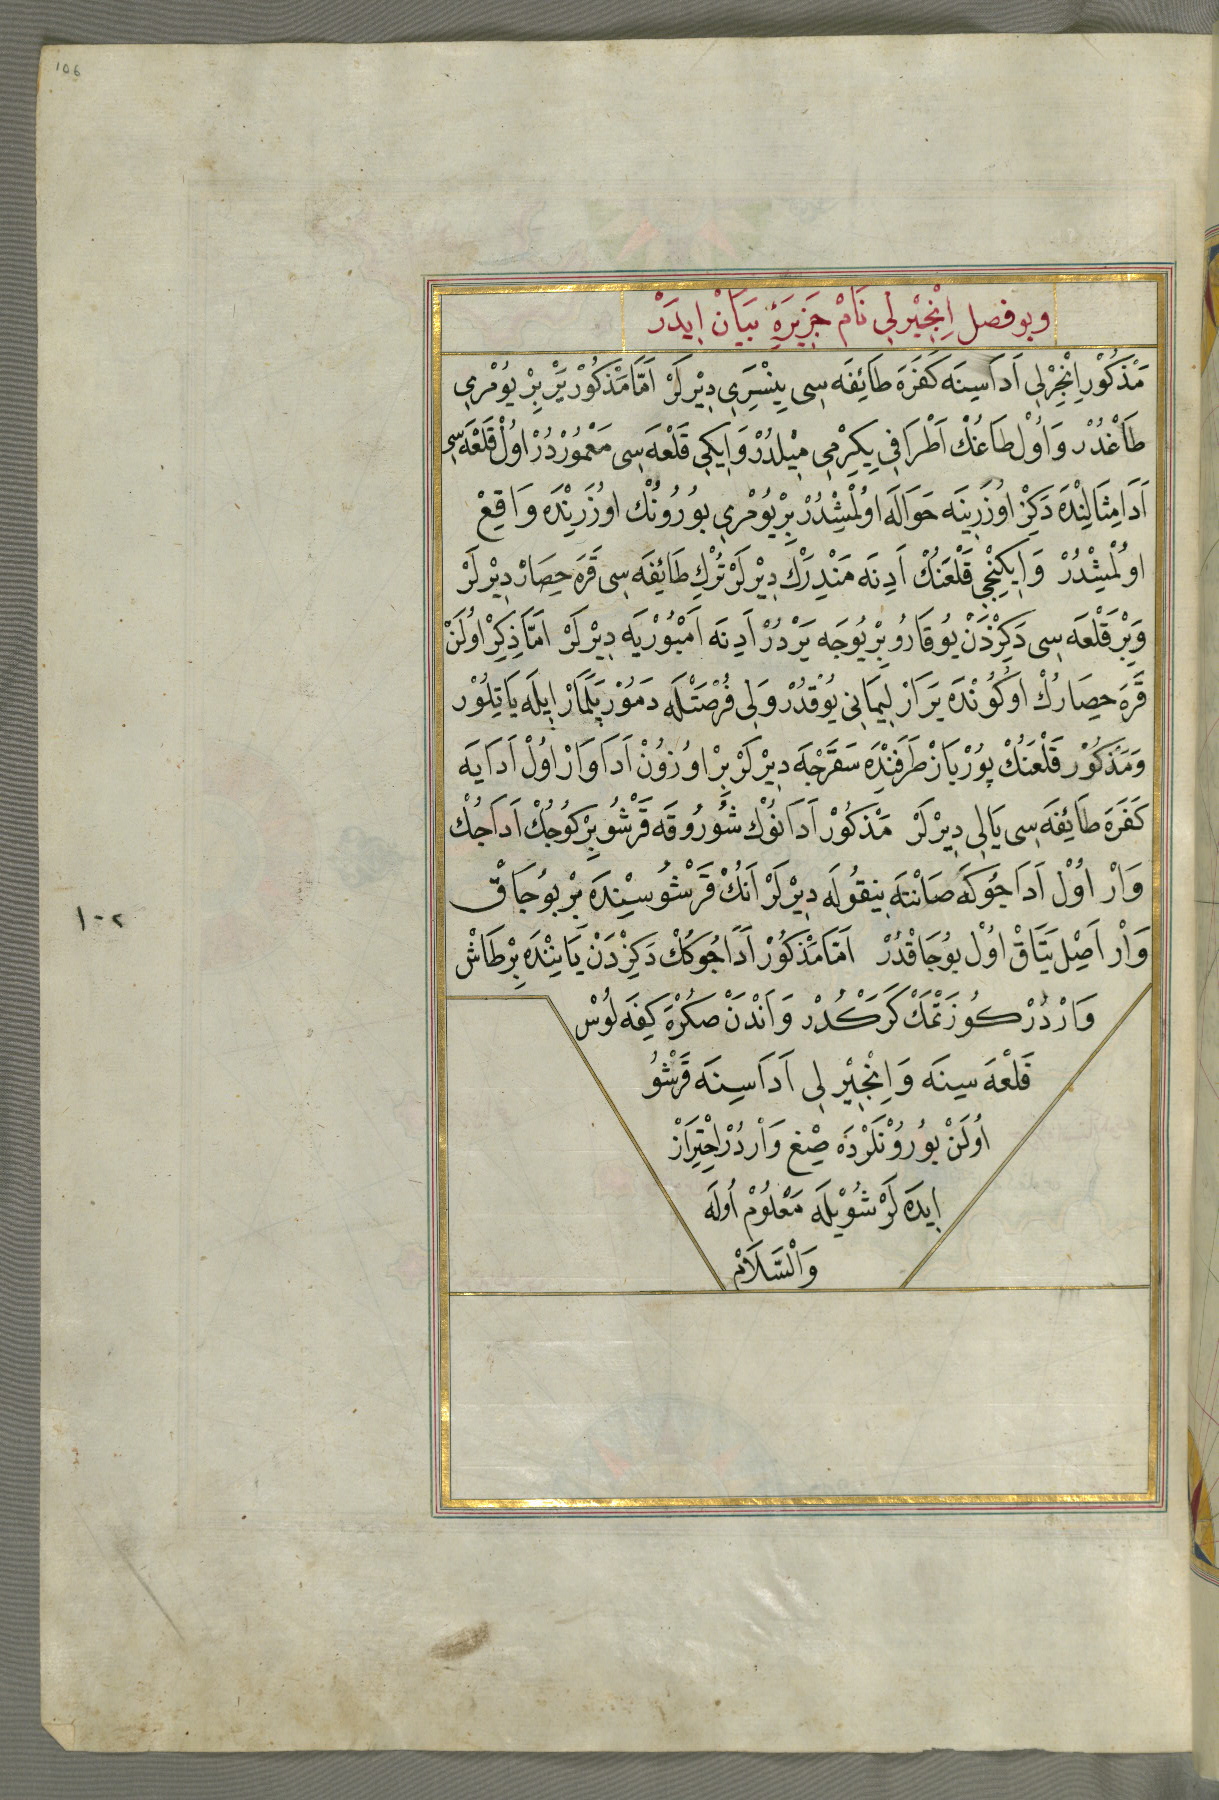 106
وبو فصل اِنْجِيْرلِي نَامْ جَزِيرَهٔ بَيَانْ اِيدَرْ
مَذْكُوْر اِنْجِرْلِي اَدَاسِينَه كَفَرَه طَائِفَه سِي نِيْسَرِي دِيْرلَرْ اَمَّا مَذْكُوْر يَرْ بِرْ يُوْمْرِي
طَاغْدُرْ وَ اُوْل طَاغُنْك اَطْرَافِي يِكِرْمِي مِيْلدُرْ وَ اِيكِي قَلْعَه سِي مَعْمُوْرْ دُرْ اوُلْ قَلْعَه سِي
اَدَا مِثَالِنْدَه دَكِزْ اوُزَرِينَه حَوَالَه اوُلْمِشْدُرْ بِرْ يُوْمْرِي بوُرُونُنْك اوُزَرِنْدَه وَاقِعْ
اوُلْمِشْدُرْ وَ اِيكِنْجِي قَلْعَنُنْكْ اَدِنَه مَنْدِرَاكْ دِيْرلَرْ تُرْكِ طَائِفَه سِي قَرَه حِصَارْ دِيْرلَرْ
وَ بِرْ قَلْعَه سِي دَكِزْدَنْ يُوقَارُو بِرْ يُوجَه يَرْدَ دُرْ اَدِنَه اَمْبُوْرْيَه دِيْرلَرْ اَمَّا ذِكِرْ اوُلَنْ
قَرَه حِصَارُكْ اوُكُوْنْدَه يَرَارْ لِيمَانِي يُوْقْدُرْ وَلِي فُرْصَتْلَه دَمُوْر پَلَامَارْ اِيلَه يَاتِلُوْر
وَ مَذْكُوْر قَلْعَنُكْ پُوْرْيَازْ طَرَفِنْدَه سَقَرْجَه دِيْرلَرْ بِرْ اوُزُونْ اَدَا وَارْ اوُلْ اَدَايَه
كَفَرَه طَائِفَه سِي يَالِي دِيْرلَرْ مَذْكُوْر اَدَانُوْك شُوْرُوقَه قَرْشُو بِرْ كُوجُكْ اَدَاجُكْ
وَارْ اوُلْ اَدَاجُوكَه صَانْتَه نِيقُولَه دِيْرلَرْ اَنُكْ قَرْشُوسِيْنْدَه بِرْ بوُجَاقْ
وَارْ اَصِيلْ يَتَاقْ اوُلْ بوُجَاقْدُرْ اَمَّا مَذْكُوْر اَدَاجُوكُكْ دَكِزْدَنْ يَانِنْدَه بِرْ طَاشْ
وَارْدُرْ كُوزَتْمَكْ كَرَكْدُرْ وَ اَنْدَنْ صَكْرَه كِيفَه لُوْسْ
قَلْعَه سِينَه وَ اِنْجِيْرلِي اَدَاسِينَه قَرْشُو
اوُلَنْ بُوْرُوْنْلَرْدَه صِيْغ وَارْدُرْ اِحْتِرَازْ
اِيدَه لَرْ شُوْيْلَه مَعْلُوْمْ اُوْلَه
وَالْسَّلَامْ
١٠٢